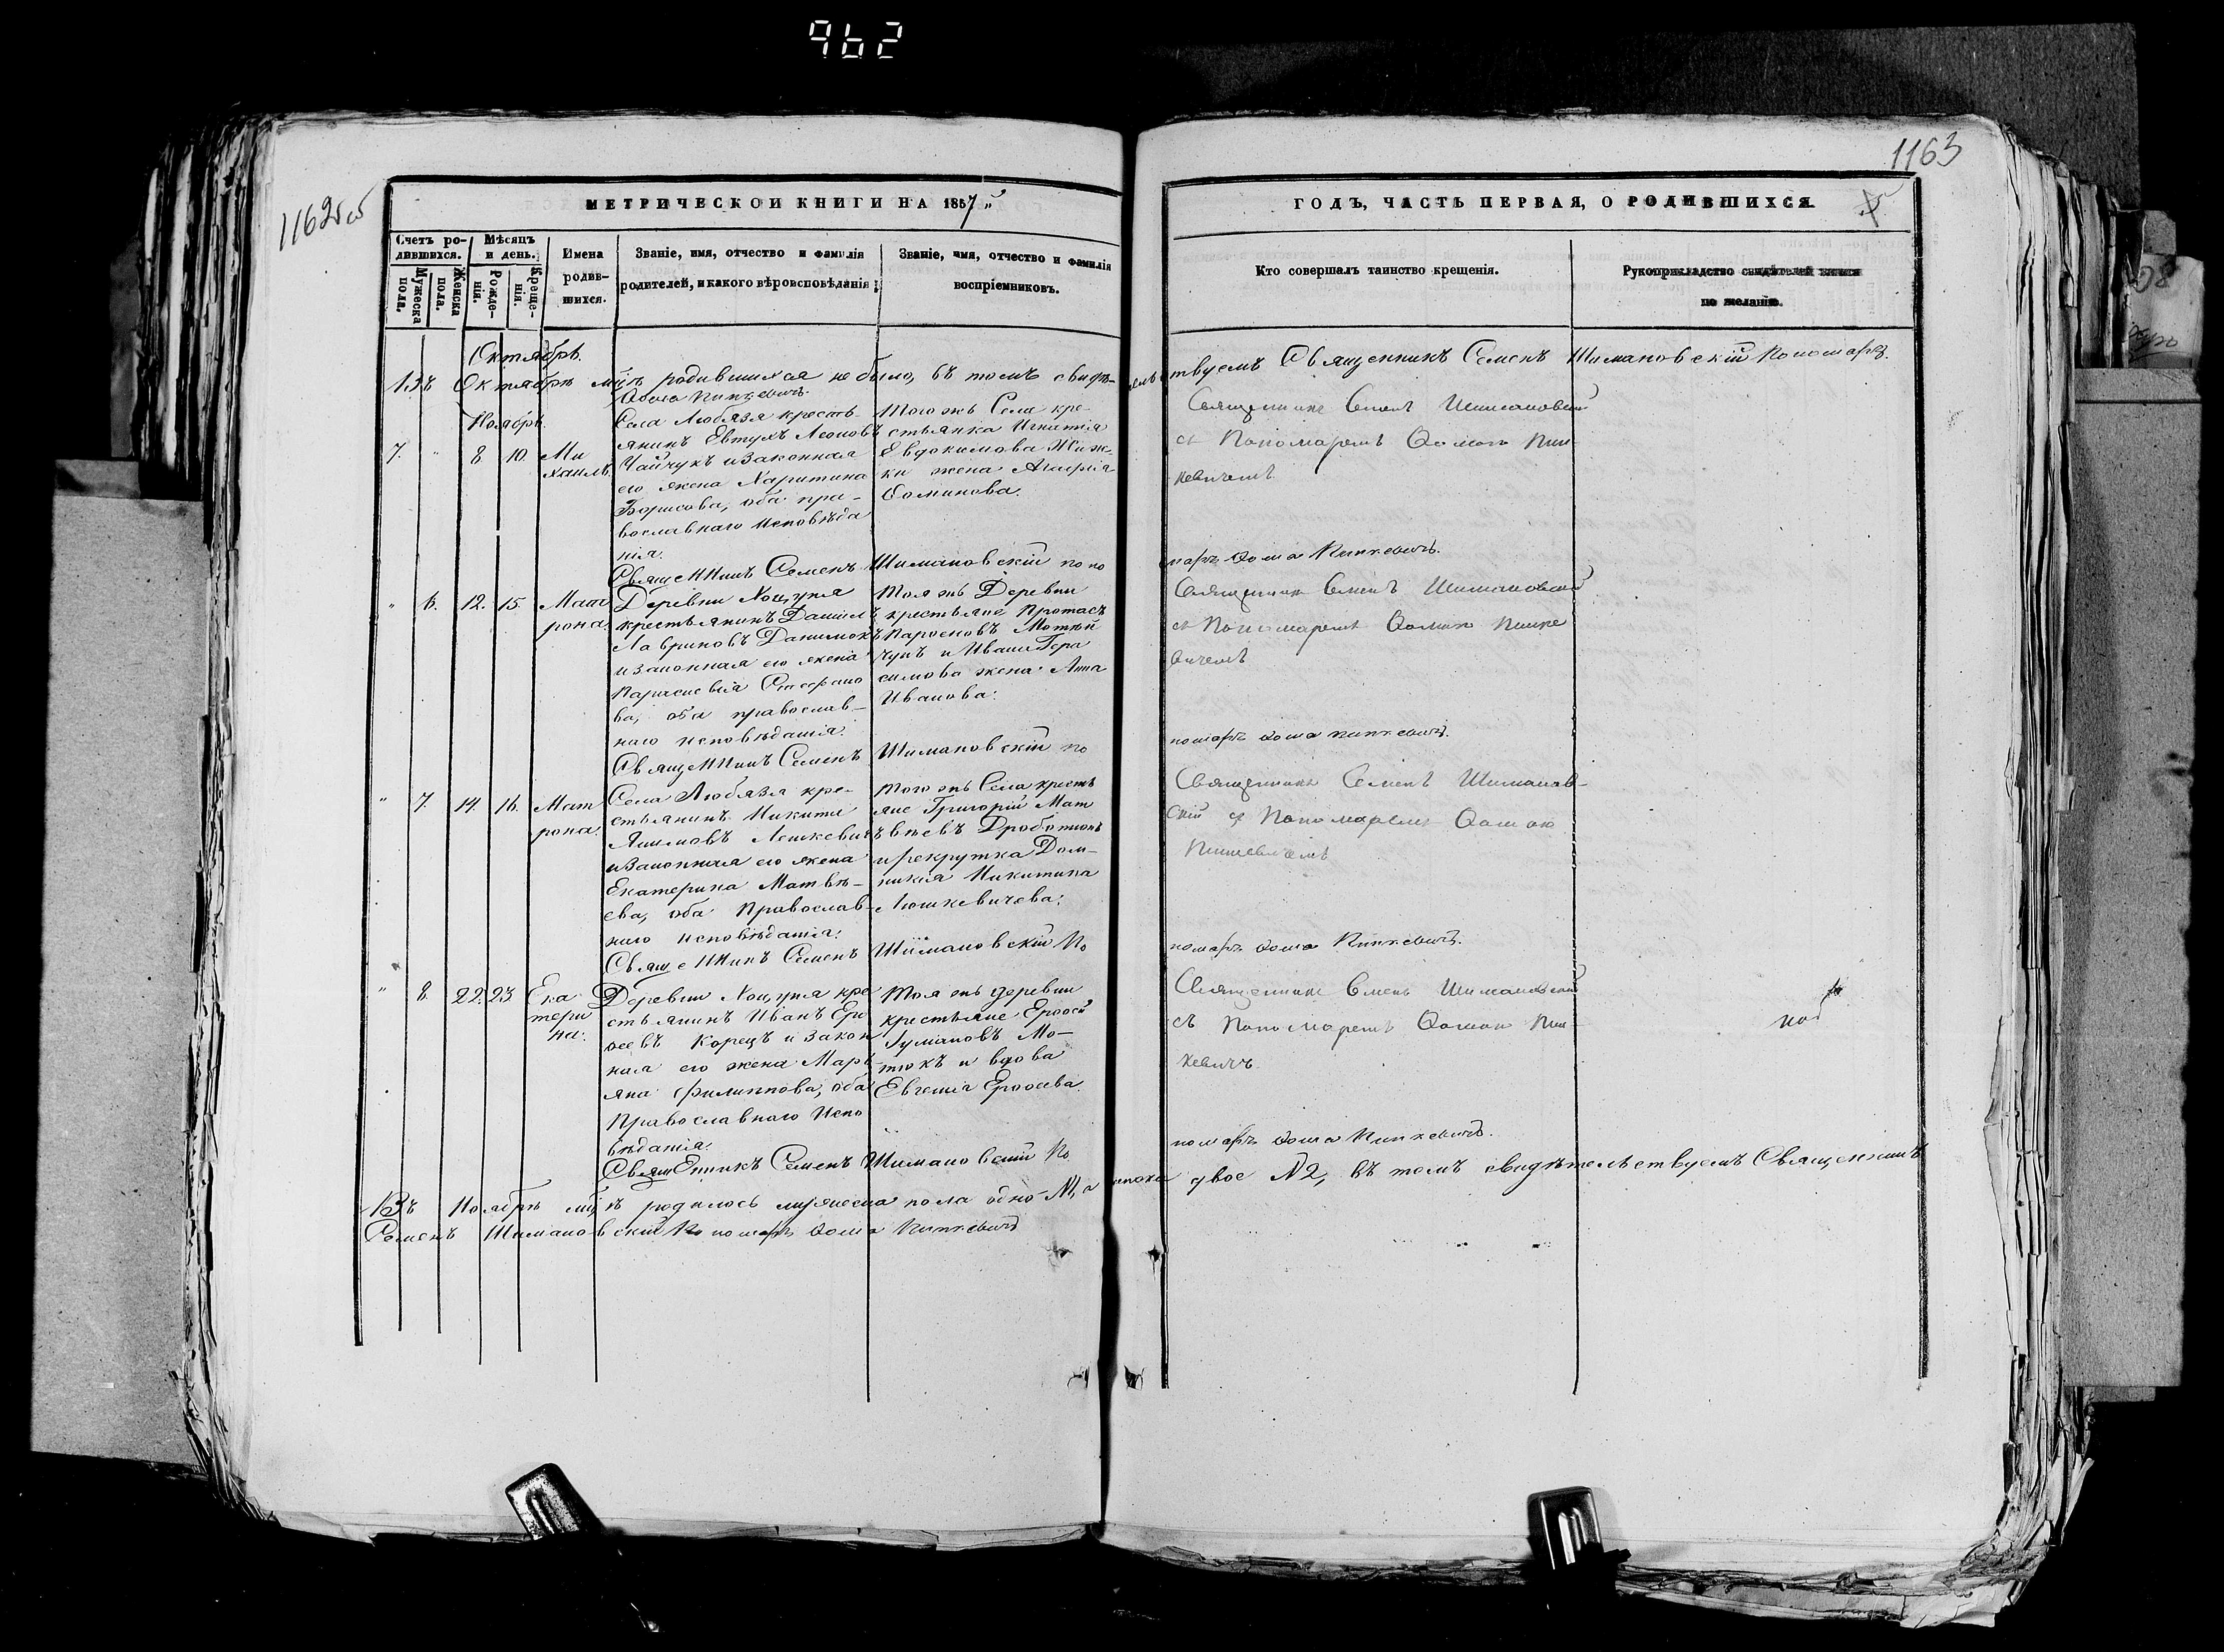 962
1162об
1163
МЕТРИЧЕСКОЙ КНИГИ НА 1857й
ГОДЪ, ЧАСТЬ ПЕРВАЯ, О РОДИВШИХСЯ.
Счетъ родившихся.
Мужеска пола.
Женска пола.
Мѣсяцъ и день.
Рожденія.
Крещенія.
Имена родившихся.
Званіе, имя, отчество и фамилія
родителей, и какого вѣроисповѣданія
Званіе, имя, отчество и фамилія
воспріемниковъ.
Кто совершалъ таинство крещенія.
Рукоприкладство свидѣтелей записи
по желанію.
Октябрь.
Въ Октябрѣ м҃цѣ родившихся не было, въ томъ свидѣтельствуемъ Священникъ Семенъ Шимановскій Пономарь
Ѳома Пинкевичъ.
Ноябрь.
7. " 8 10. Михаилъ
Села Любязя кресть-
янинъ Евтухъ Леоновъ
Чайчукъ и законная
его жена Харитина
Борисова, оба пра-
вославнаго исповѣда
нія.
Того жъ Села кре-
стьянка Игнатія
Евдокимова
ки жена
Ѳоминова.
Священникъ Семенъ Шимановскій
съ Пономаремъ Ѳомою Пин-
кевичемъ
Священникъ Семенъ Шимановскій поно
марь Ѳома Пинкевичъ.
" 6. 12. 15. Матрона.
Деревни Хоцуня
крестьянинъ Даніилъ
Лавриновъ Данилюкъ
и законная его жена
Параскевія
ва, оба православ-
наго исповѣданія.
Тоя жъ Деревни
крестьяне Протасъ
чукъ и Ивана Гера
симова жена Анна
Иванова.
Священникъ Семенъ Шимановскій
съ Пономаремъ Ѳомою Пинке
вичемъ
Священникъ Семенъ Шимановскій по
номарь Ѳома Пинкевичъ.
" 7. 14. 16. Матрона.
Села Любязя кре-
стьянинъ Никита
Якимовъ Лешкевичъ
и законная его жена
Екатерина Матвѣ-
ева, оба Православ-
наго исповѣданія.
Того жъ Села кресть
яне Григорій Мат
вѣевъ
и рекрутка Дом-
никія Никитина
Люшкевичева.
Священникъ Семенъ Шиманов-
скій съ Пономаремъ Ѳомою
Пинкевичемъ
Священникъ Семенъ Шимановскій По
номарь Ѳома Пинкевичъ.
" 8. 22. 23 Екатерина.
Деревни Хоцуня кре
стьянинъ Иванъ Еро
ѳеевъ Корецъ и закон
ная его жена Марь
яна Филиппова, оба
Православнаго Испо
вѣданія.
Тоя жъ деревни
крестьяне Ероѳей
Гумановъ Мо-
тюкъ и вдова
Евгенія Ероѳеева.
Священникъ Семенъ Шимановскій
съ Пономаремъ Ѳомою Пин-
кевичъ
Священникъ Семенъ Шимановскій По
номарь Ѳома Пинкевичъ.
Въ Ноябрѣ м҃цѣ родилось мужеска пола одно №1, а двое №2, въ томъ свидѣтельствуемъ Священникъ
Семенъ Шимановскій Пономарь Ѳома Пинкевичъ